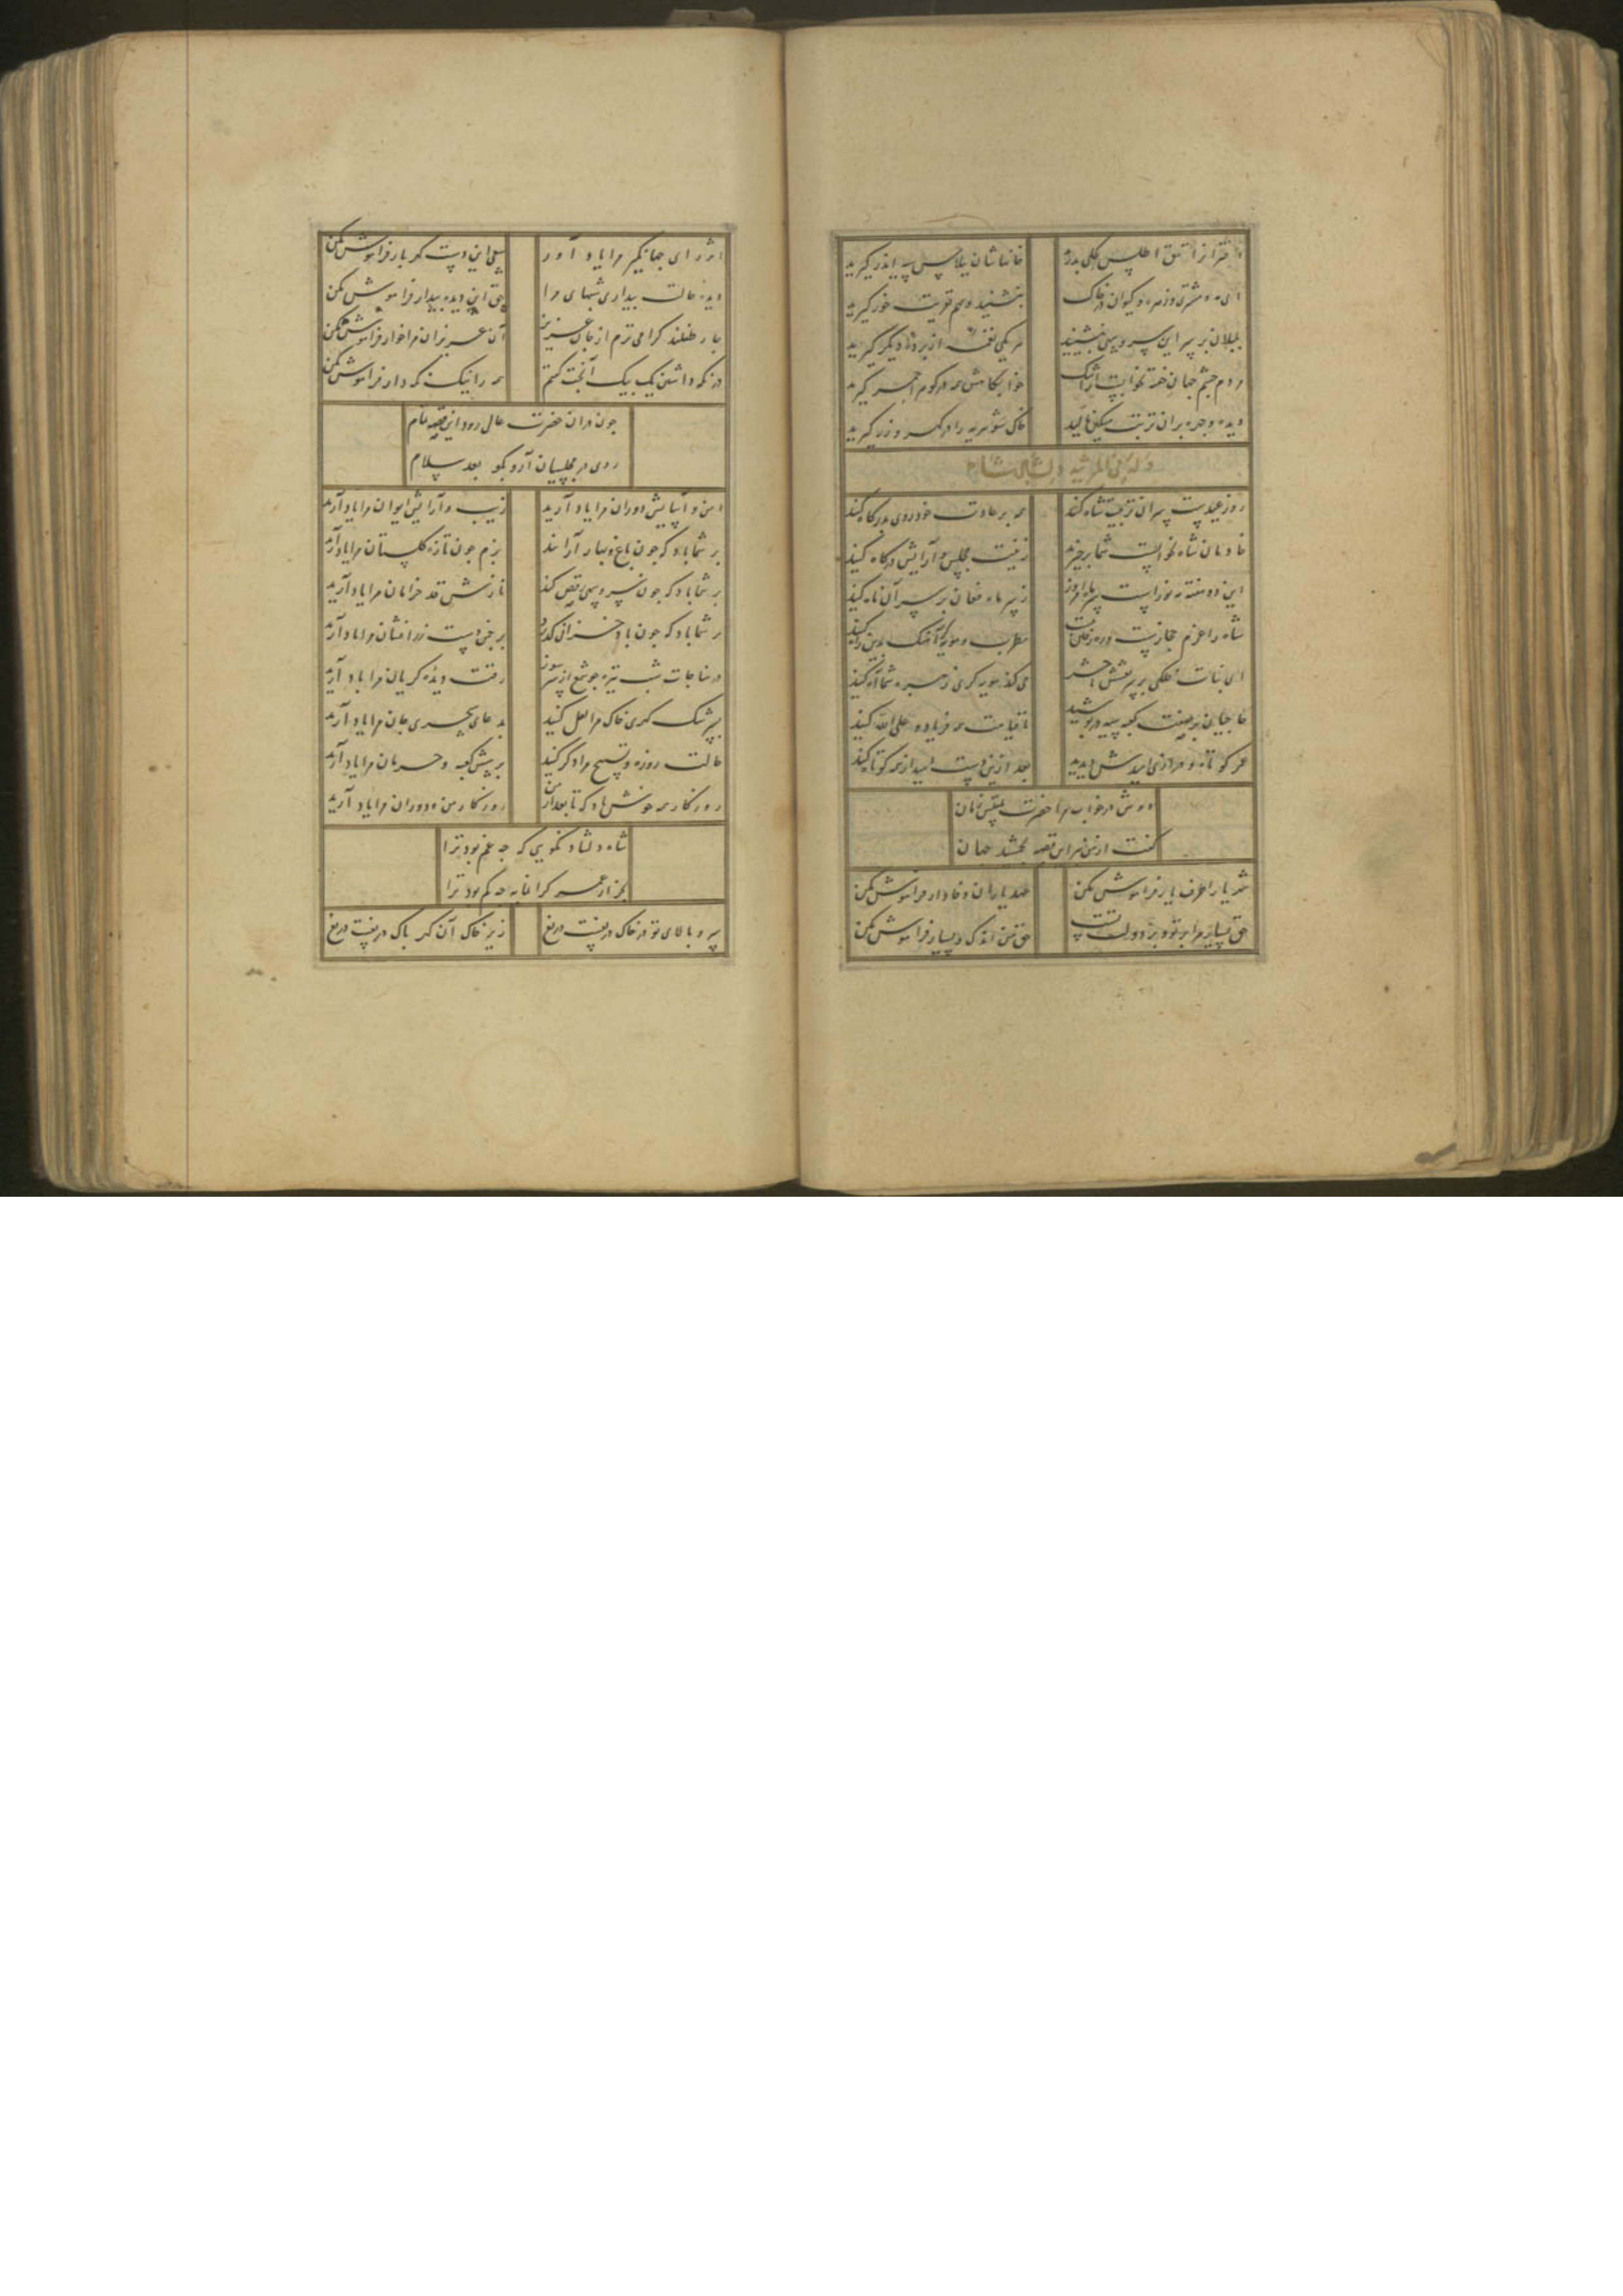 اختران را تتق اطلس کحلی بدرید
خانهاشان پلاس سیه اندر گیرید
ای مه و مشتری و زهره و کیوان در خاک
بنشینید و هم تعزیت خور گیرید
بلبلان بر سر این سرو سهی بنشینید
هر یکی نغمه از پرده دیگر گیرید
مردم چشم جهان خفته بخوابست ز اشک
خوابگاهش همه در گوهر احمر گیرید
دیده و چهره بران تربت مشکین مالید
خاک شوریده را در گهر و زر گیرید
وله فی المرثیه دلشاد شاه
روز عیدست سران تربیت شاه کنند
همه بر عادت خود روی بدرگاه کنید
خادمان شاه بخوابست شما برخیزید
زینت مجلس و آرایش درگاه کنید
این دو هفته مه نو راست سر ماه امروز
ز سر ماه فغان بر سر آن ماه کنید
شاه را عزم حجازست
مطرب و مویه گر آهنگ
ای بنات فلکی بر سر نعشش حاضر
می کند مویه گری زهره شما آه کنید
حاجیان بر صفت کعبه سیه درپوشید
تا قیامت همه فریاد و علی الله کنید
عمر کوتاه و درازی امیدش دیدید
بعد ازین دست امید از همه کوتاه کنید
دوش در خواب مرا حضرت بلقیس زمان
گفت از من بر این قصه بجمشید جهان
شهریارا طرف یار فراموش مکن
عهد یاران وفادار فراموش مکن
حق بسیار مرا بر تو و بر دولت تست
حق من اندک و بسیار فراموش مکن
اثر رای جهانگیر مرا یاد آور
سعی این دست گهربار فراموش مکن
دیده حالت بیداری شبهای مرا
حق این دیده بیدار فراموش مکن
چار طفلند گرامی ترم از جان عزیز
آن عزیزان مرا خوار فراموش مکن
در نگه داشتن یک بیک آنچت گفتم
همه را نیک نگه دار فراموش مکن
چون دران حضرت عالی رود این قصه تمام
روی در مجلسیان آر و بگو بعد سلام
امن و آسایش دوران مرا یاد آرید
زیب و آرایش ایوان مرا یاد آرید
بر شما باد که چون باغ و بهار آرایند
بزم چون تازه گلستان مرا یاد آرید
بر شما باد که چون سرو سهی رقص کند
نازش قد خرامان مرا یاد آرید
بر شما باد که چون باد خزان گذرد
بر چمن دست زرافشان مرا یاد آرید
در مناجات شب تیره چو شمع از سر سوز
رقت دیده گریان مرا یاد آرید
بسرشک گهری خاک مرا لعل کنید
بدعای سحری جان مرا یاد آرید
حالت روزه و تسبیح مرا ذکر کنید
پیش کعبه و حرمان مرا یاد آرید
روزگار همه خوش باد که تا بعد از من
روزگار من و دوران مرا یاد آرید
شاه دلشاد نگویی که چه غم بود ترا
بجز از عمر گرانمایه چه کم بود ترا
سرو بالای تو در خاک دریغست دریغ
زیر خاک آن گهر پاک دریغست دریغ